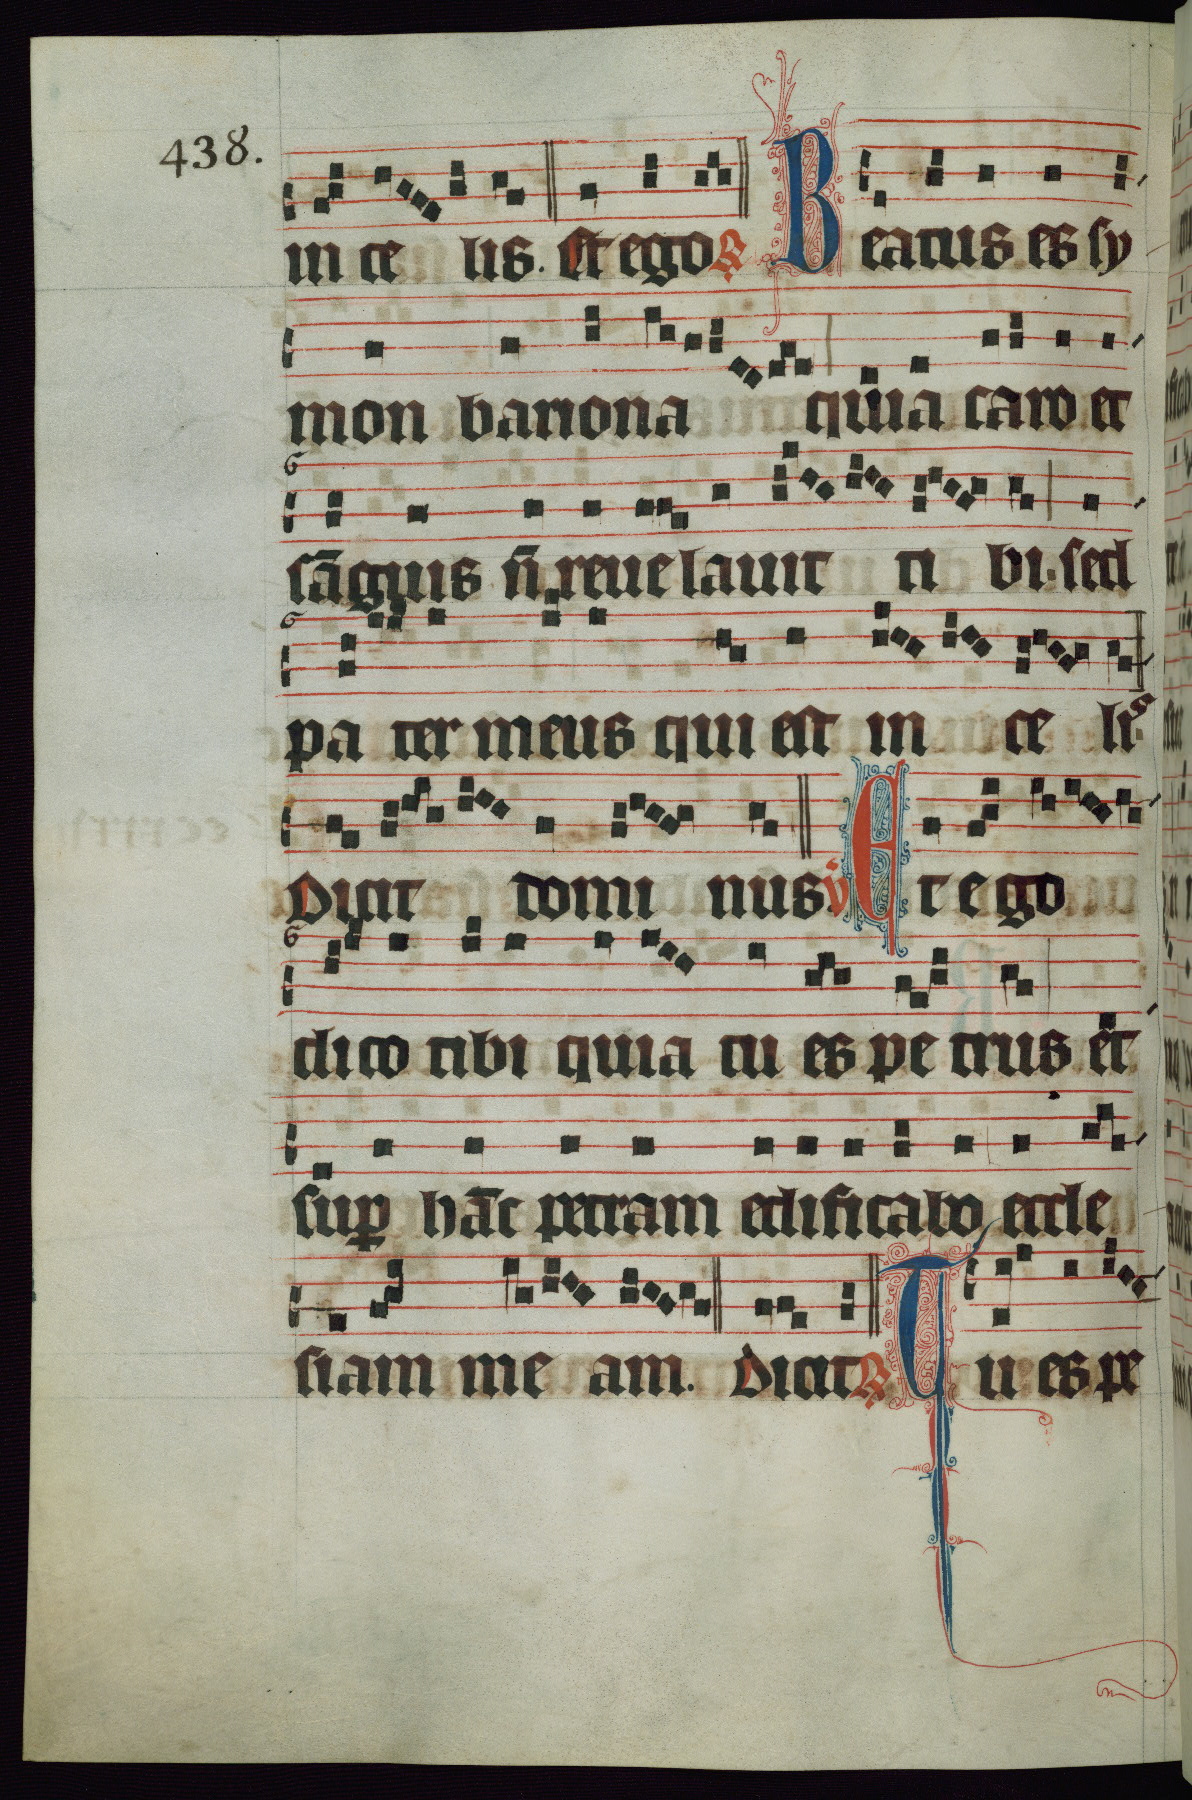 438.
in ce lis. Et ego ℟ Beatus es sy
mon bariona quia caro et
sāguis n̄ reuelauit ti bi. sed
pa ter meus qui est in ce lis
Dicit domi nus. ℣ Et ego
dico tibi quia tu es pe trus et
suꝑ hāc petram edificabo eccle
siam me am. Dicit ℟ Tu es pe